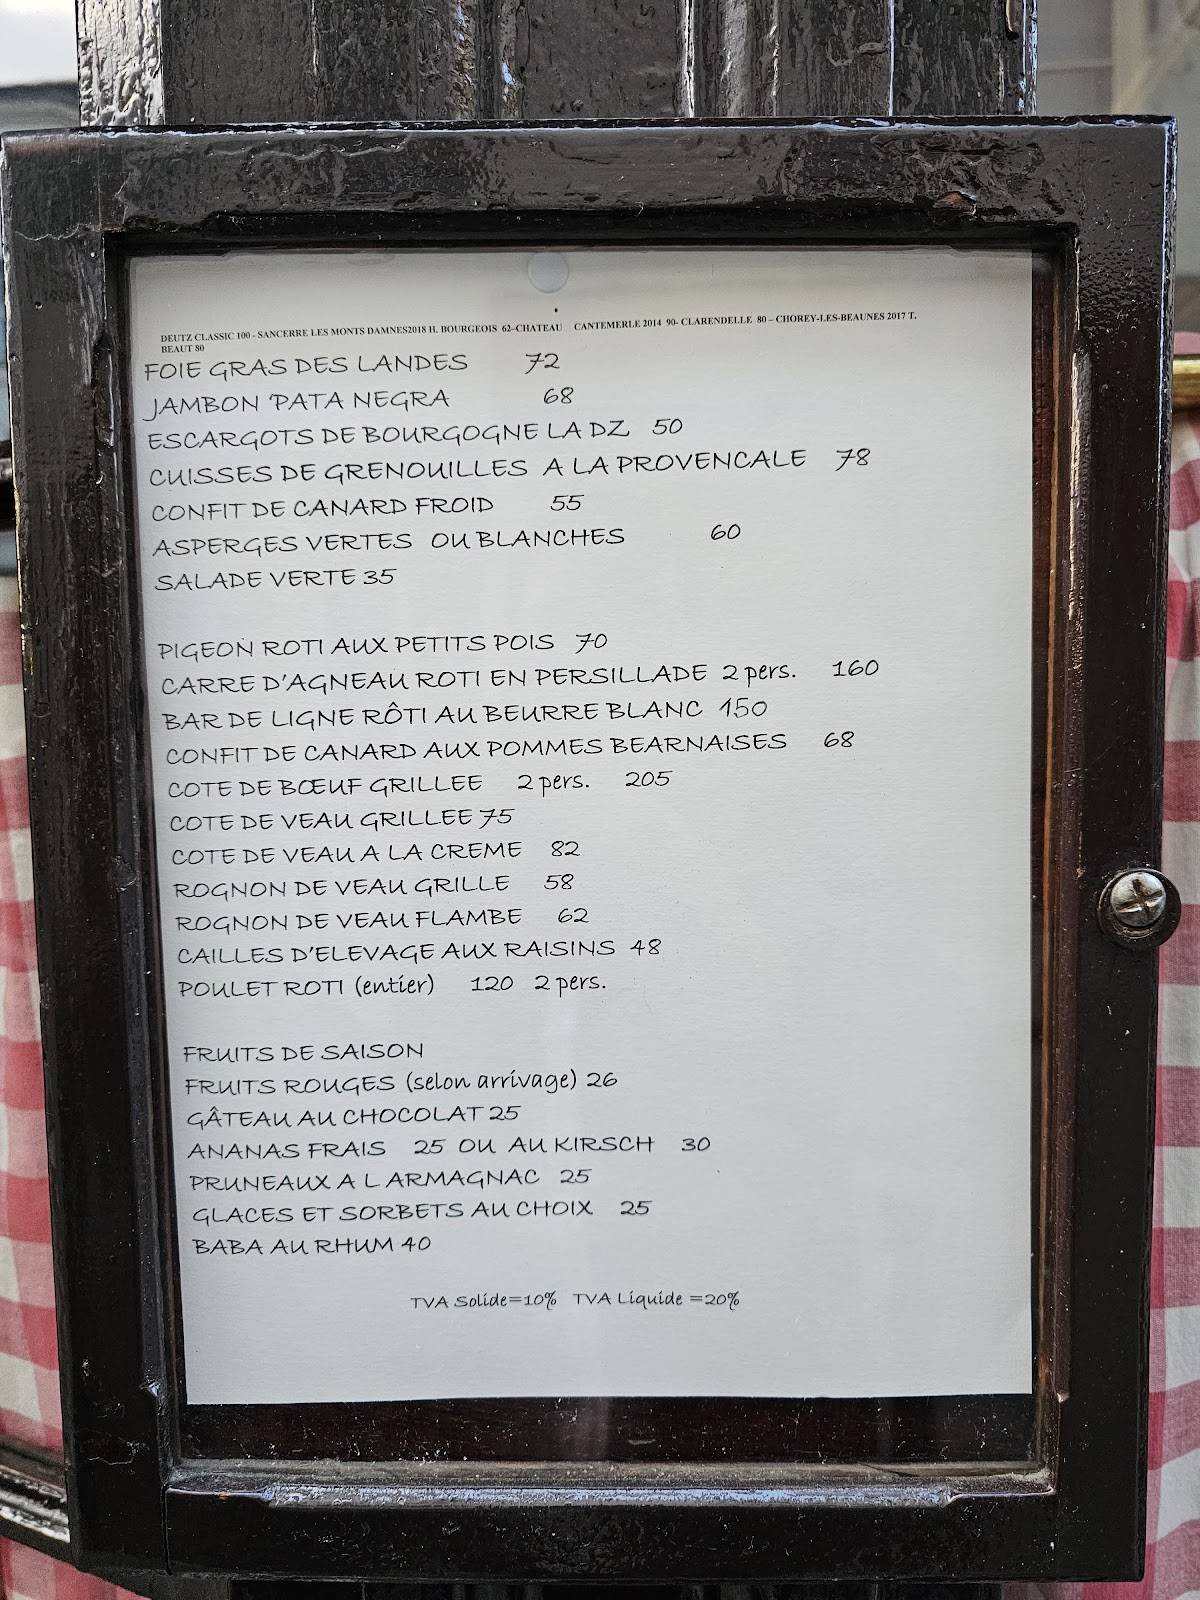 DEUTZ CLASSIC 100 - SANCERRE LES MONTS DAMNES2018 H. BOURGEOIS 62-CHATEAU CANTEMERLE 2014 90- CLARENDELLE 80 – CHOREY-LES-BEAUNES 2017 T.
BEAUT 80
FOIE GRAS DES LANDES 72
JAMBON 'PATA NEGRA 68
ESCARGOTS DE BOURGOGNE LA DZ 50
CUISSES DE GRENOUILLES A LA PROVENCALE 78
CONFIT DE CANARD FROID 55
ASPERGES VERTES OU BLANCHES 60
SALADE VERTE 35
PIGEON ROTI AUX PETITS POIS 70
CARRE D'AGNEAU ROTI EN PERSILLADE 2 pers. 160
BAR DE LIGNE RÔTI AU BEURRE BLANC 150
CONFIT DE CANARD AUX POMMES BEARNAISES 68
COTE DE BŒUF GRILLEE 2 pers. 205
COTE DE VEAU GRILLEE 75
COTE DE VEAU A LA CREME 82
ROGNON DE VEAU GRILLE 58
ROGNON DE VEAU FLAMBE 62
CAILLES D'ELEVAGE AUX RAISINS 48
POULET ROTI (entier) 120 2 pers.
FRUITS DE SAISON
FRUITS ROUGES (selon arrivage) 26
GÂTEAU AU CHOCOLAT 25
ANANAS FRAIS 25 OU AU KIRSCH 30
PRUNEAUX A L ARMAGNAC 25
GLACES ET SORBETS AU CHOIX 25
BABA AU RHUM 40
TVA Solide=10% TVA Liquide =20%